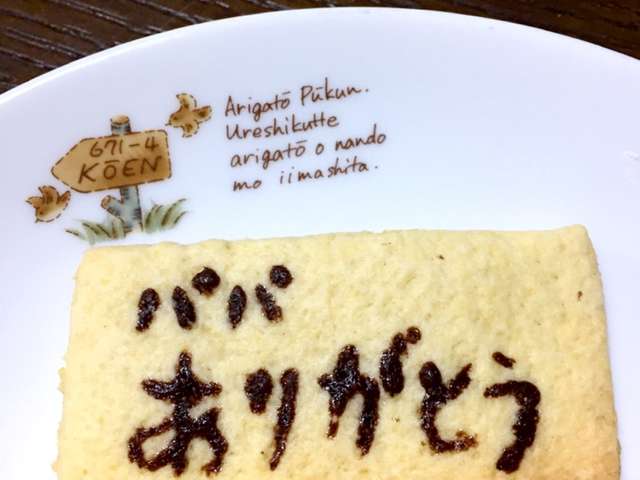 671-4
KŌEN
Arigatō Pūkun.
Ureshikutte
arigatō o nando
mo iimashita.
パパ
ありがとう